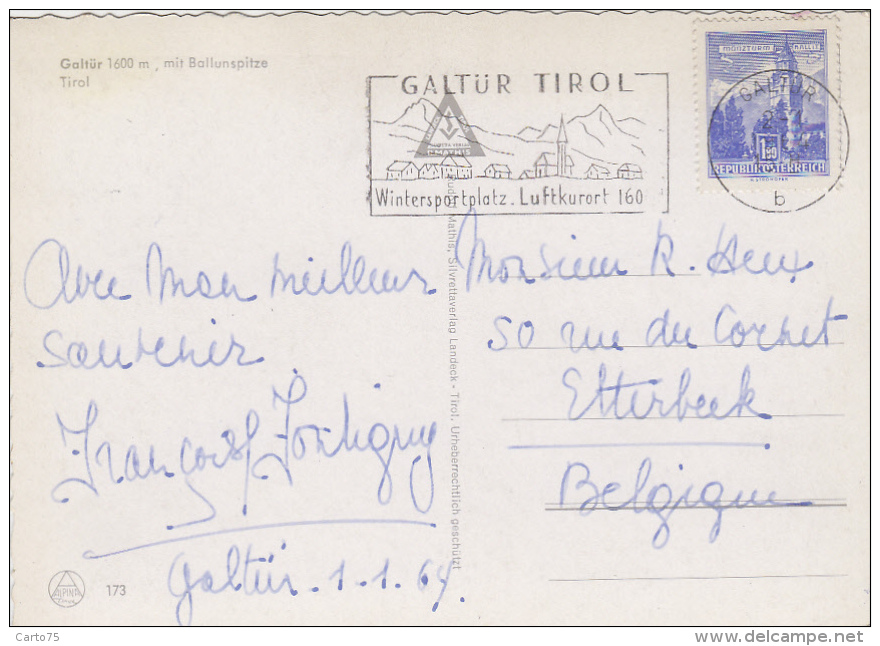 Galtür 1600 m, mit Ballunspitze
Tirol
GALTÜR TIROL
MATHIS
Wintersportplatz. Luftkurort 160
MÜNZTURM HALL I.T.
1.50
REPUBLIK ÖSTERREICH
GALTÜR
b
Avec mon meilleur
souvenir
François Jortigny
Galtür. 1.1.64.
Monsieur R. Heux
50 rue du Cornet
Etterbeek
Belgique
Rudolf Mathis, Silvrettaverlag Landeck - Tirol. Urheberrechtlich geschützt
ALPINA
173
Carto75
http://www.delcampe.net